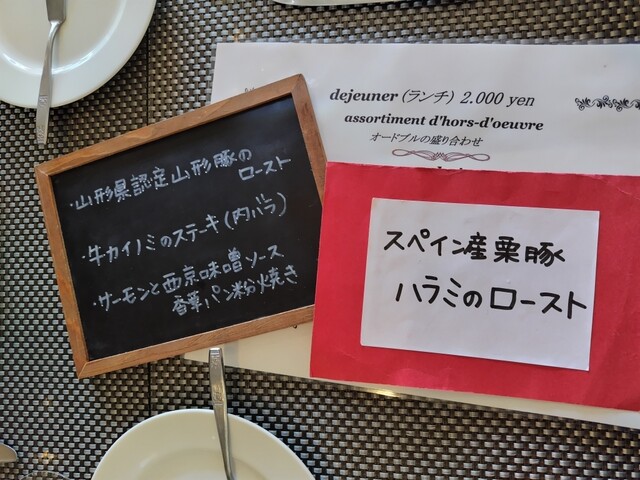 dejeuner (ランチ) 2.000 yen
assortiment d'hors-d'oeuvre
オードブルの盛り合わせ
・山形県認定山形豚の
ロースト
・牛カイノミのステーキ(内バラ)
・サーモンと西京味噌ソース
香草パン粉焼き
スペイン産栗豚
ハラミのロースト